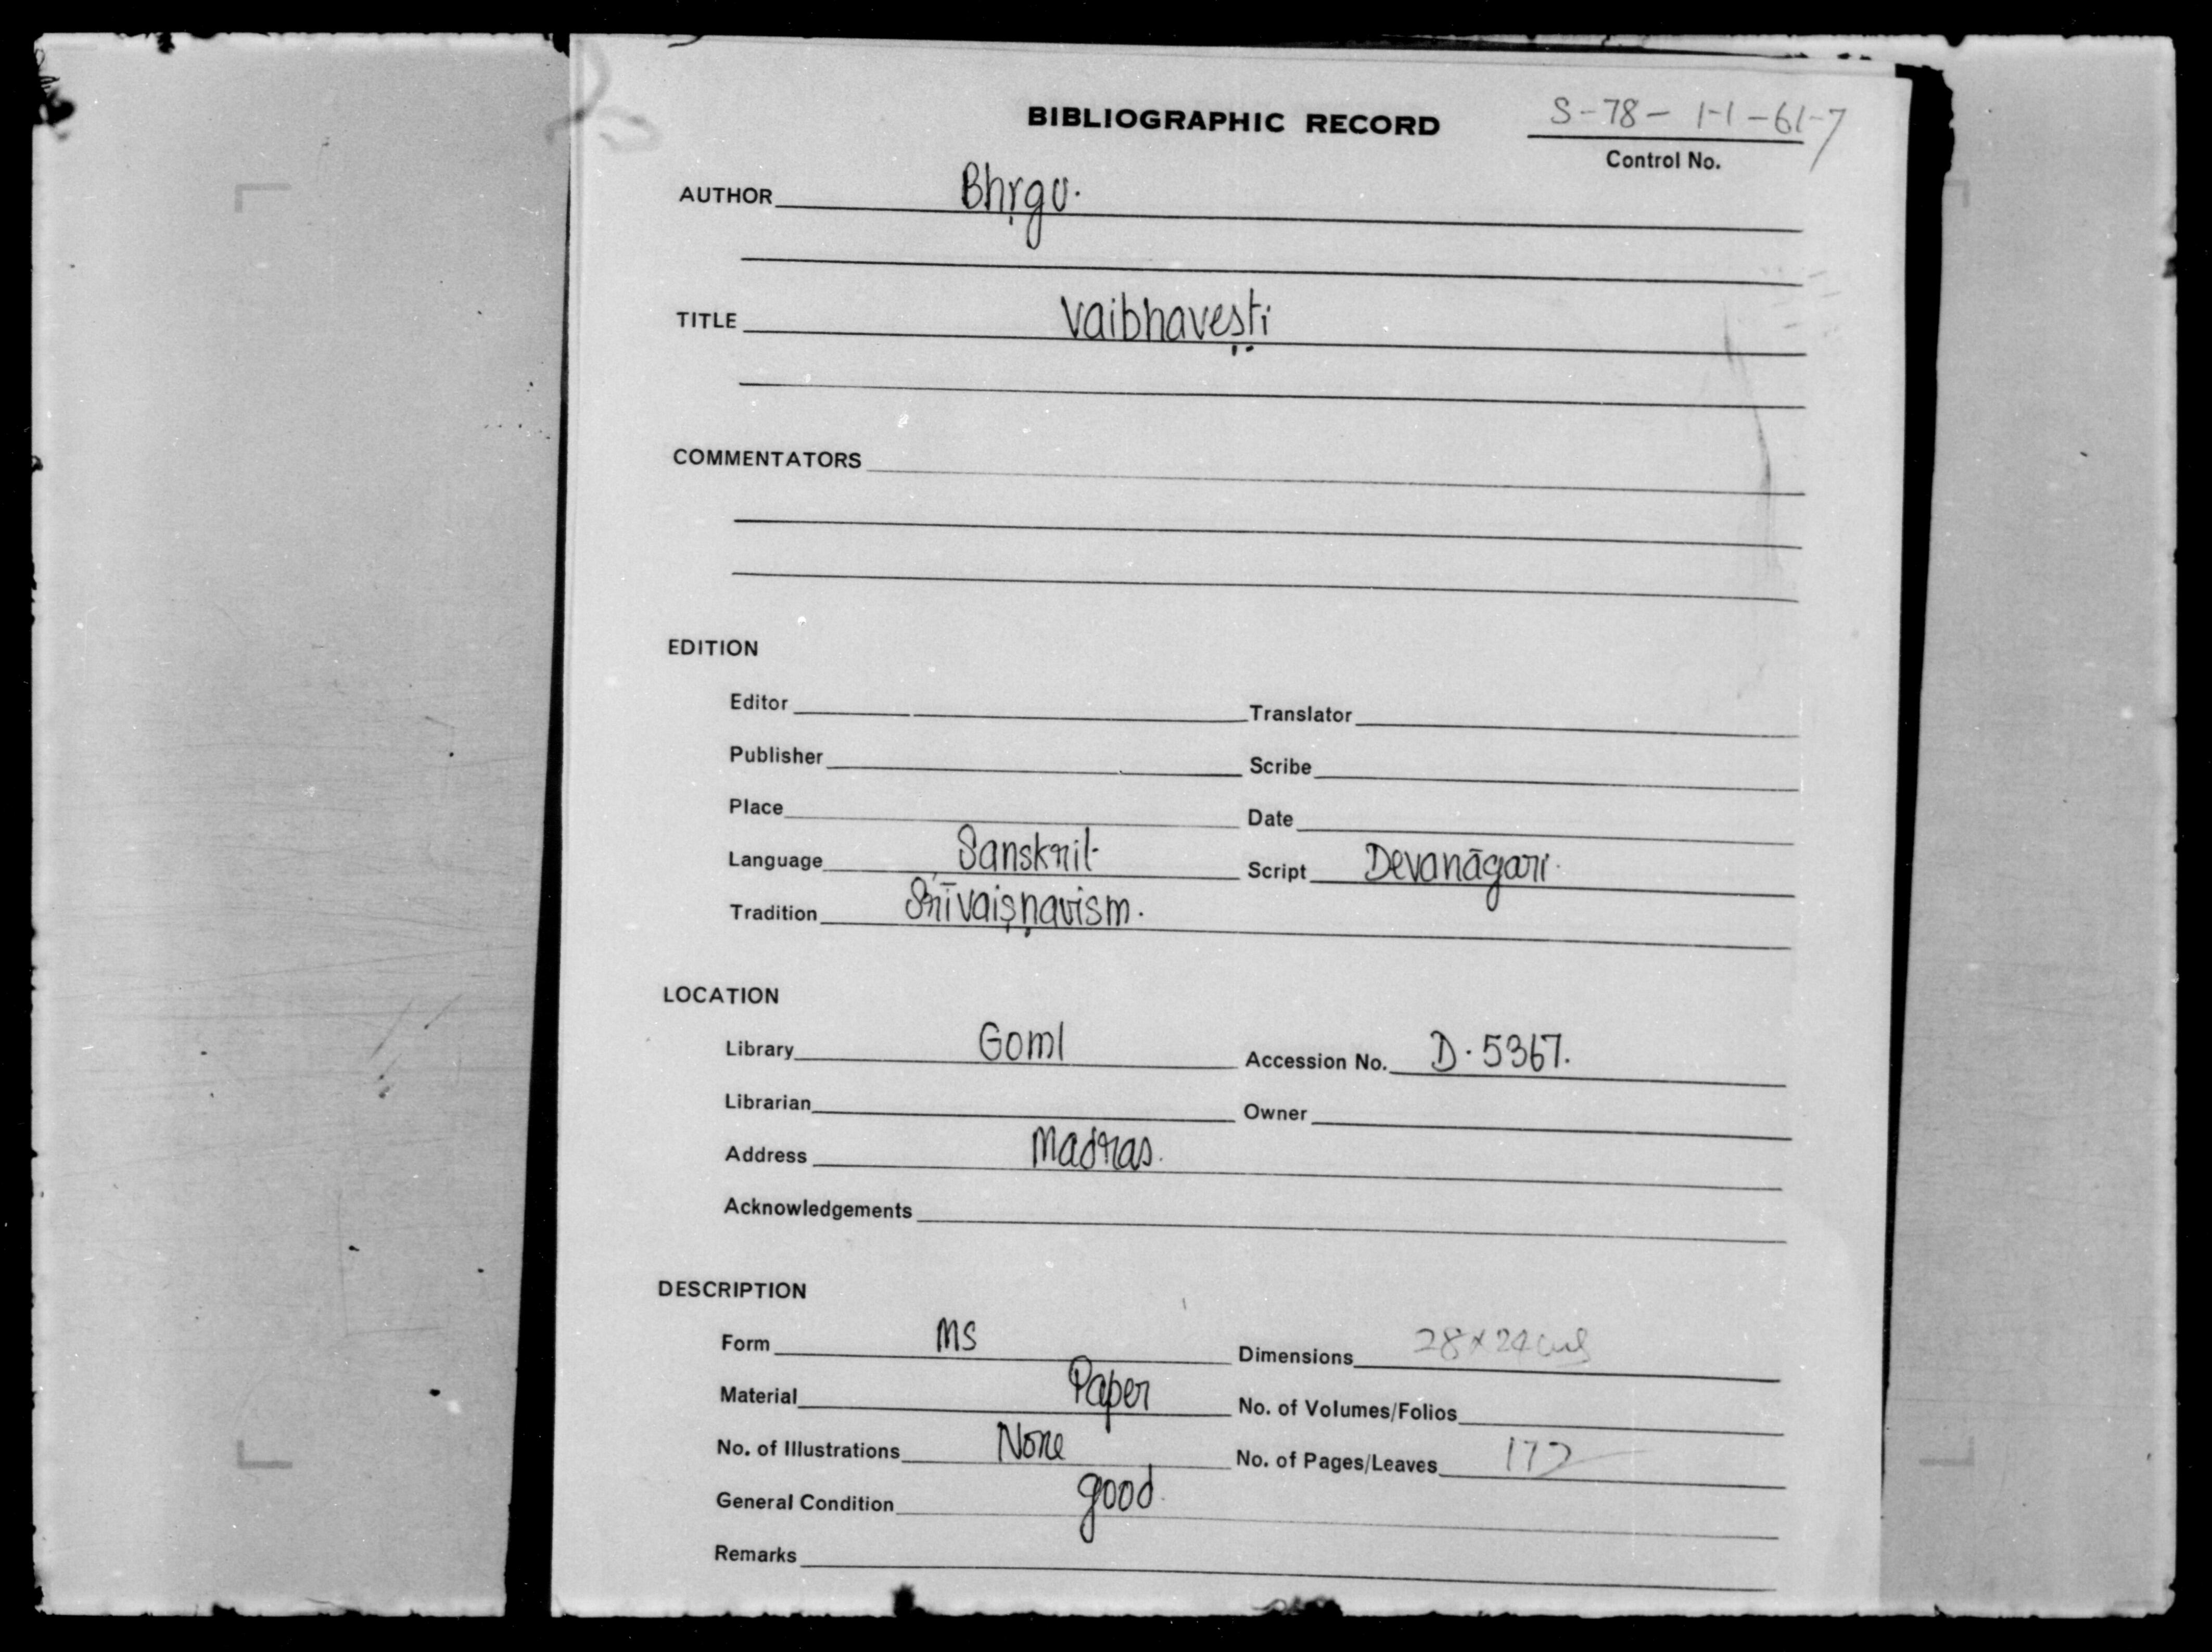 BIBLIOGRAPHIC RECORD S-78-1-1-61-7
Control No.
AUTHOR Bhṛgu.
TITLE Vaibhaveṣṭi
COMMENTATORS
EDITION
Editor Translator
Publisher Scribe
Place Date
Language Sanskrit Script Devanāgari.
Tradition Śrīvaiṣṇavism.
LOCATION
Library Goml Accession No. D.5367.
Librarian Owner
Address Madras.
Acknowledgements
DESCRIPTION
Form MS Dimensions 28x24 cms
Material Paper No. of Volumes/Folios
No. of Illustrations None No. of Pages/Leaves
General Condition good.
Remarks